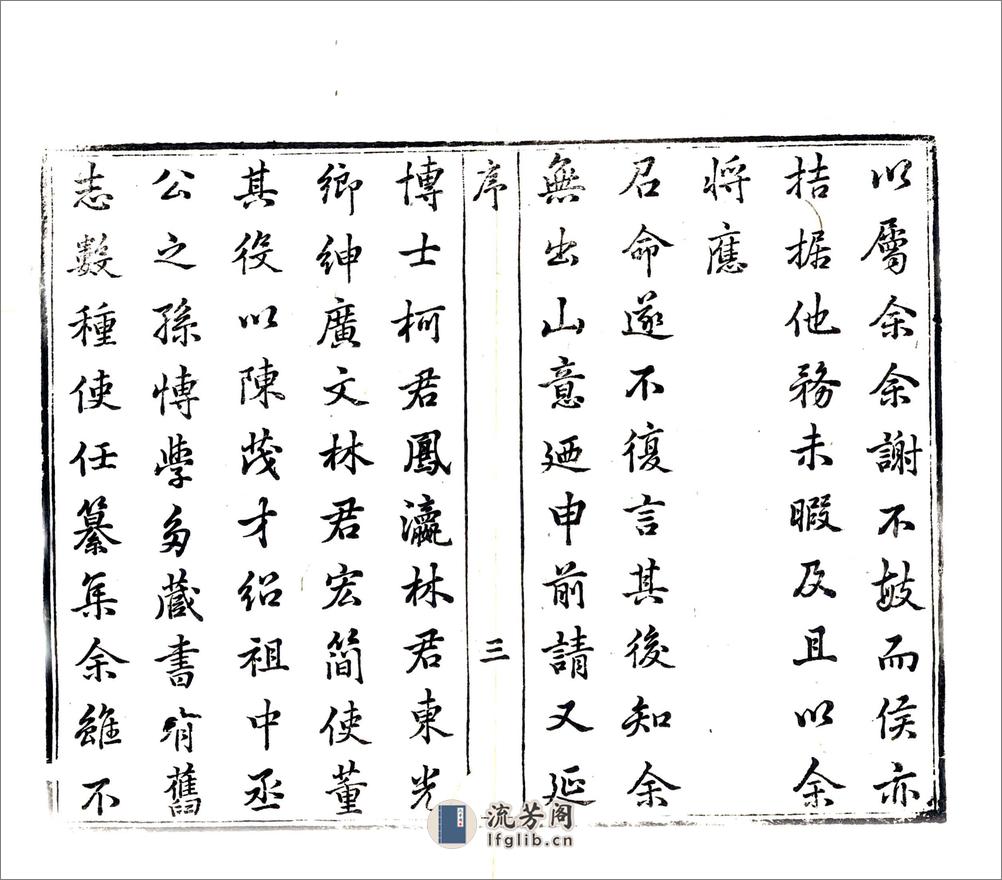 以屬余余謝不敏而侯亦
拮据他務未暇及且以余
將應
召命遂不復言其後知余
無出山意廼申前請又延
序 三
博士柯君鳳瀛林君東光
鄉紳廣文林君宏簡使董
其役以陳茂才紹祖中丞
公之孫博學多藏書有舊
志數種使任纂集余雖不
流芳阁
lfglib.cn